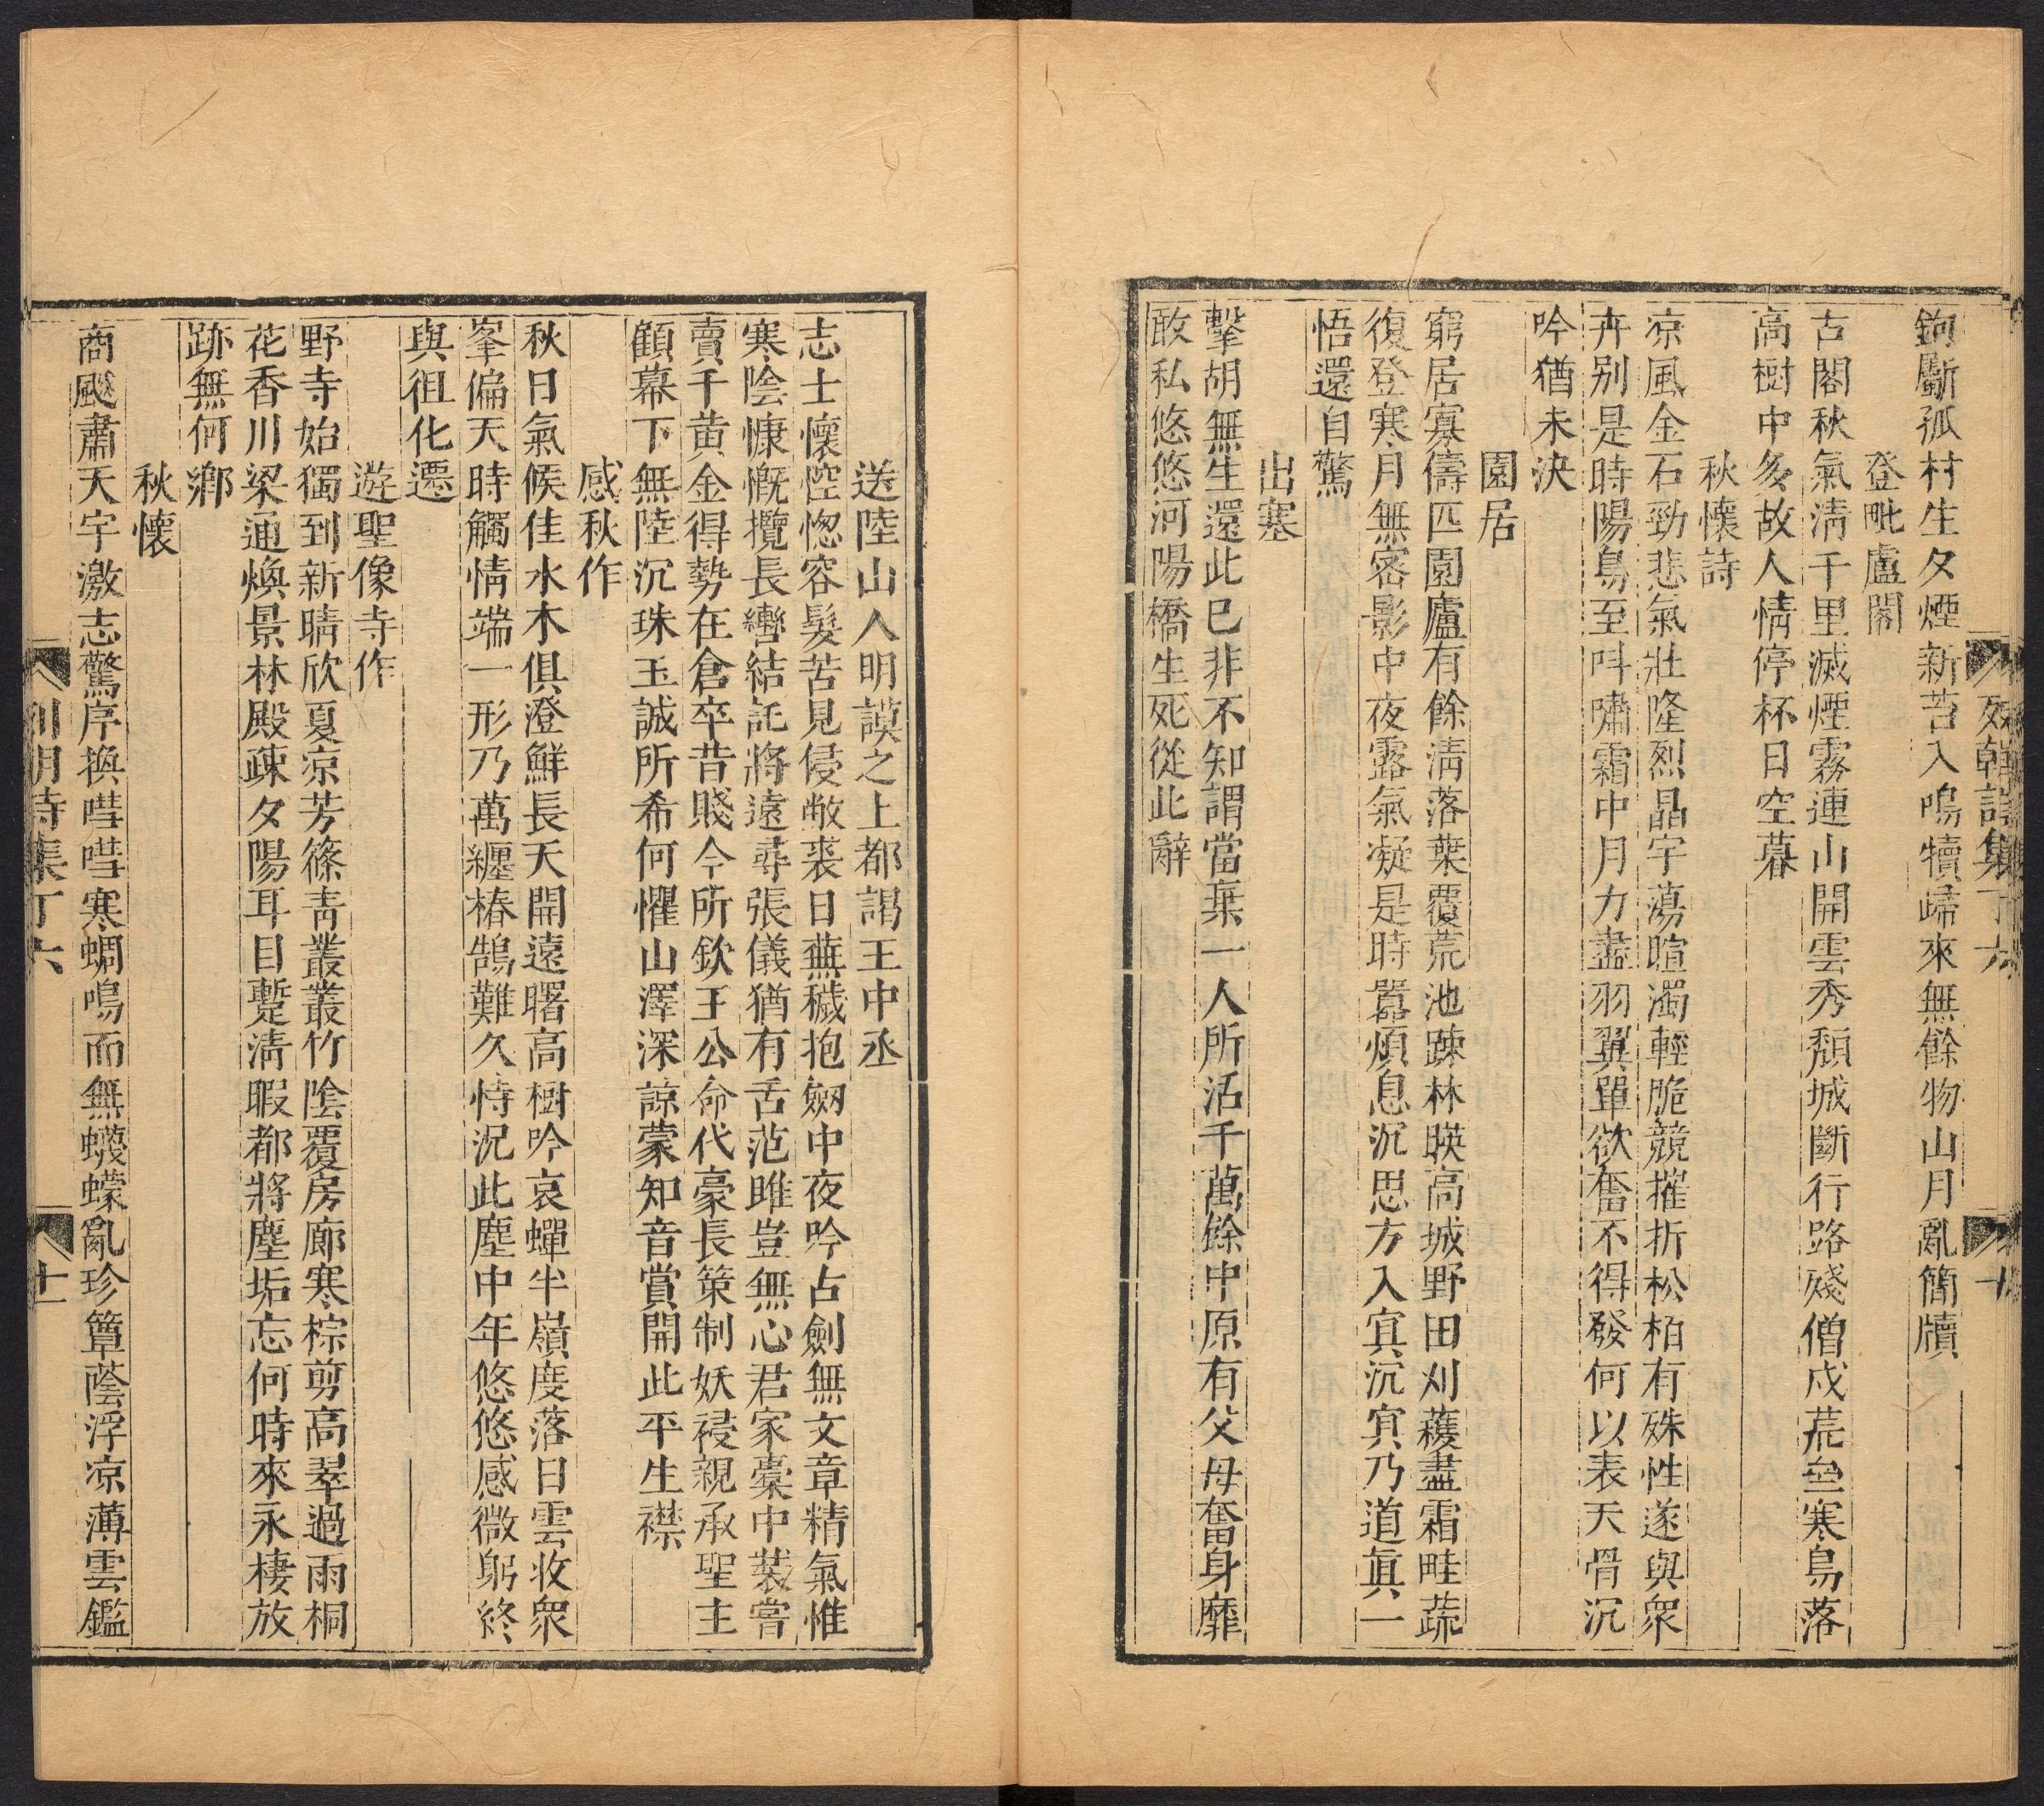 鉤斸孤村生夕煙新苦入鳴犢歸來無餘物山月亂簡牘
登毗盧閣
古閣秋氣清千里滅煙霧連山開雲秀頹城斷行路殘僧戍荒壘寒鳥落
高樹中多故人情停杯日空暮
秋懷詩
凉風金石勁悲氣壯隆烈晶宇蕩暄濁輕脆競摧折松栢有殊性遂與衆
卉别是時陽鳥至呌嘯霜中月力盡羽翼單欲奮不得發何以表天骨沉
吟猶未決
園居
窮居寡儔匹園廬有餘清落葉覆荒池踈林暎高城野田刈穫盡霜畦蔬
復登寒月無密影中夜露氣凝是時囂煩息沉思方入㝠沉㝠乃道眞一
悟還自驚
出塞
擊胡無生還此已非不知謂當棄一人所活千萬餘中原有父母奮身靡
敢私悠悠河陽橋生死從此辭
列朝詩集丁六
十
送陸山人明謨之上都謁王中丞
志士懷悾惚容髮苦見侵敝裘日蕪穢抱劒中夜吟占劍無文章精氣惟
寒陰慷慨攬長轡結託將遠尋張儀猶有舌范雎豈無心君家橐中裝嘗
賣千黄金得勢在倉卒昔賤今所欽王公命代豪長策制妖祲親承聖主
顧幕下無陸沉珠玉誠所希何懼山澤深諒蒙知音賞開此平生襟
感秋作
秋日氣候佳水木俱澄鮮長天開遠曙高樹吟哀蟬半嶺度落日雲收衆
峯偏天時觸情端一形乃萬纒椿鵠難久恃況此塵中年悠悠感微躬終
與徂化遷
遊聖像寺作
野寺始獨到新晴欣夏凉芳篠青叢叢竹陰覆房廊寒棕剪高翠過雨桐
花香川梁逈煥景林殿疎夕陽耳目蹔清暇都將塵垢忘何時來永棲放
跡無何鄉
秋懷
商飈肅天宇激志驚序換嘒嘒寒蜩鳴而無蠛蠓亂珍簟蔭浮凉薄雲鑑
列朝詩集丁六
十一